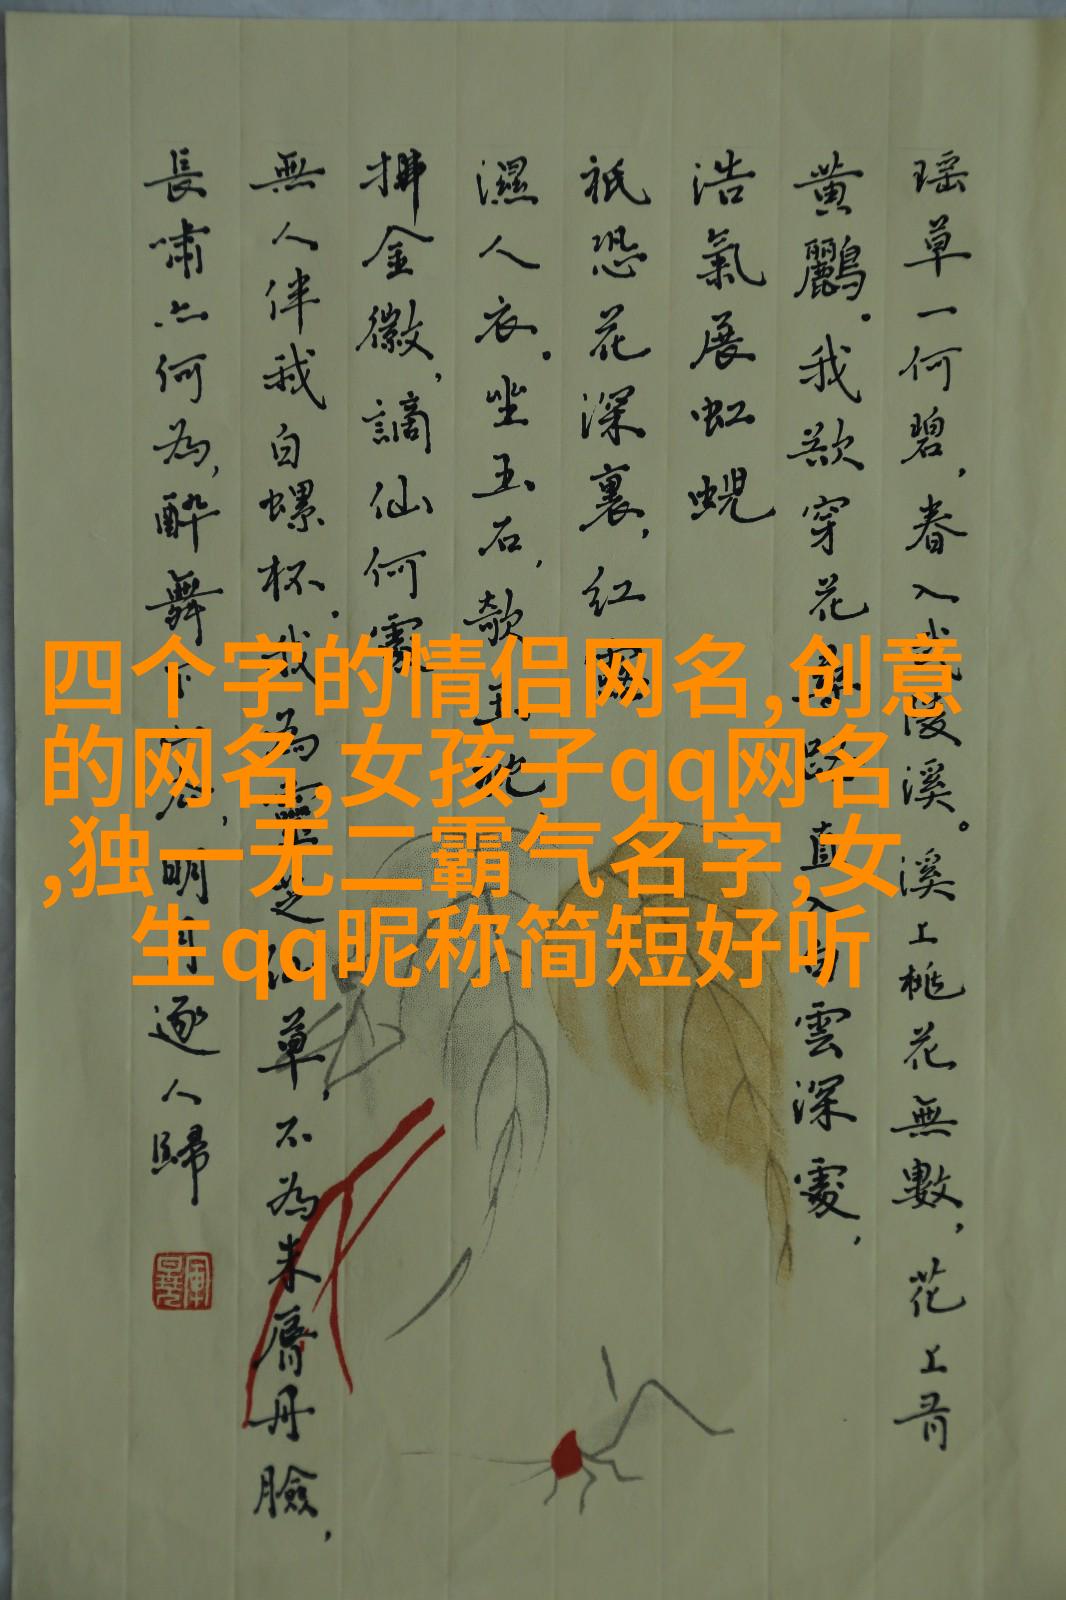 瑶草一何碧，春入武陵溪。溪上桃花無數，花上有
黄鸝。我欲穿花尋路，直入白雲深處，
浩氣展虹蜺
祇恐花深裏，紅露
濕人衣。坐玉石，欹玉枕
拂金徽，謫仙何處
無人伴我白螺杯。我為靈芝仙草，不為朱脣丹臉，
長嘯亦何為，醉舞下山去，明月逐人歸
四个字的情侣网名,创意
的网名,女孩子qq网名
,独一无二霸气名字,女
生qq昵称简短好听